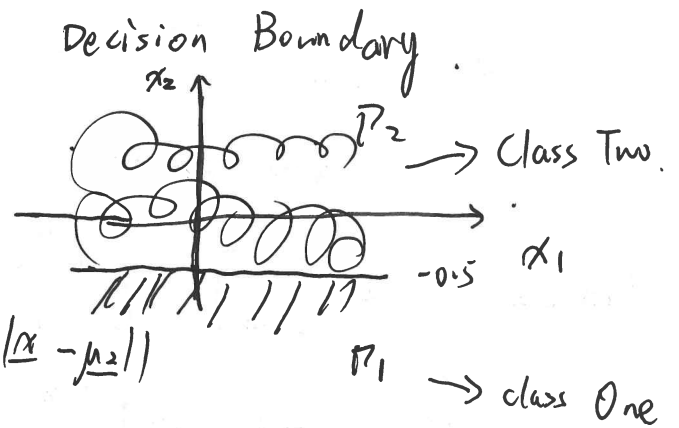 Decision Boundary.
x₂
Γ₂ → Class Two.
x₁
-0.5
|x - μ₂||
Γ₁ → class One